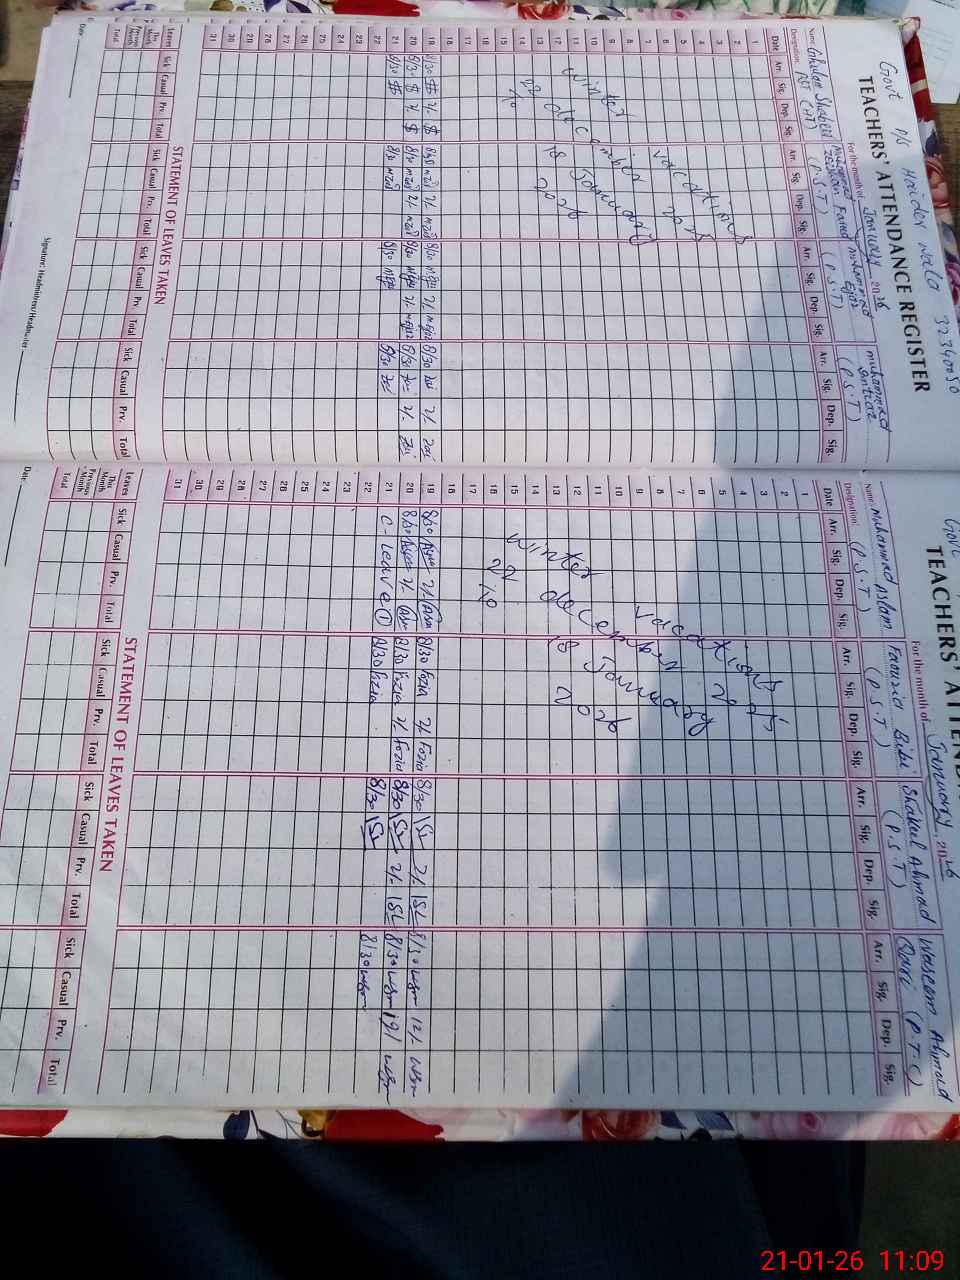 Govt P/S Haider wala 32340050
TEACHERS' ATTENDANCE REGISTER
For the month of January 2026
Name: Ghulam Shabeer Muhammad Zeeshan Muhammad Ejaz Muhammad
Designation: (P.S.T) (P.S.T) (P.S.T)
Date Arr. Sig. Dep. Sig. Arr. Sig. Dep. Sig. Arr. Sig. Dep. Sig. Arr. Sig. Dep. Sig.
1
2
3
4
5
6
7
8
9
10
11
12
13
14
15
16
17
18
winter vacations
22 december 2025
To 18 January 2026
19 8/30 2/- 8/30 2/- 8/30 2/- 8/30 2/-
20 8/30 2/- 8/30 2/- 8/30 2/- 8/30 2/-
21 8/30 8/30 8/30 8/30
22
23
24
25
26
27
28
29
30
31
STATEMENT OF LEAVES TAKEN
Leaves Sick Casual Prv. Total Sick Casual Prv. Total Sick Casual Prv. Total Sick Casual Prv. Total
This Month
Previous Month
Total
Date: Signature: Headmistress/Headmaster
Govt
TEACHERS' ATTEND
For the month of January, 2026
Name: Muhammad Aslam Fouzia Bibi Shakeel Ahmad Waseem Ahmad
Designation: (P.S.T) (P.S.T) (P.S.T) Qari (P.T.C)
Date Arr. Sig. Dep. Sig. Arr. Sig. Dep. Sig. Arr. Sig. Dep. Sig. Arr. Sig. Dep. Sig.
1
2
3
4
5
6
7
8
9
10
11
12
13
14
15
16
17
18
winter vacations
22 december 2025
To 18 January 2026
19 8/30 2/- 8/30 Fozia 2/- Fozia 8/30 2/- 8/30 12/-
20 8/30 2/- 8/30 Fozia 2/- Fozia 8/30 2/- 8/30
21 C-leave 1 8/30 Fozia 8/30 8/30
22
23
24
25
26
27
28
29
30
31
STATEMENT OF LEAVES TAKEN
Leaves Sick Casual Prv. Total Sick Casual Prv. Total Sick Casual Prv. Total Sick Casual Prv. Total
This Month
Previous Month
Total
Date:
21-01-26 11:09